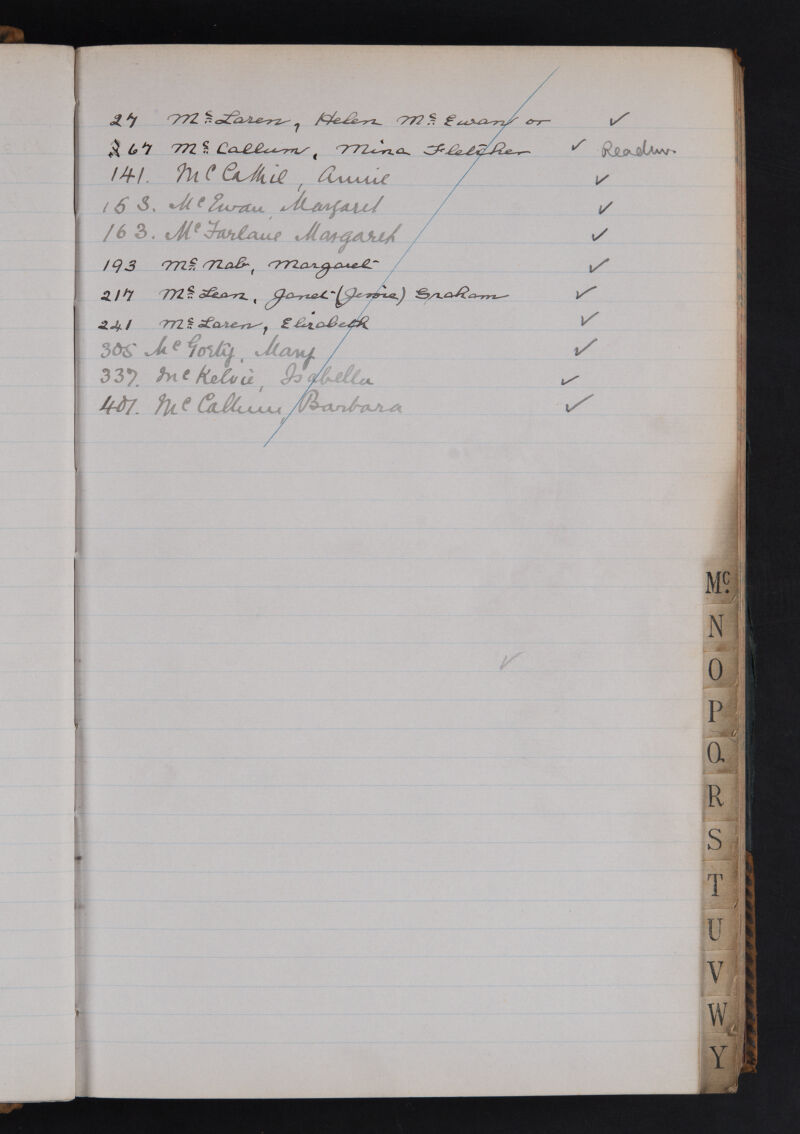 27 Mc Laren, Helen Mc Ewan or ✓
267 Mc Callum, Mina Fletcher ✓ Readm.
141. McCathie, Annie ✓
153. McEwan, Margaret ✓
163. McFarlane Margaret ✓
193 Mc Nab, Margaret ✓
217 Mc Lean, Janet (Jessie) Graham ✓
241 Mc Laren, Elizabeth ✓
305 McGorty, Mary ✓
337. McKelvie, Isabella ✓
407. McCallum, Barbara ✓
✓
Mc.
N
O
P
Q
R
S
T
U
V
W
Y